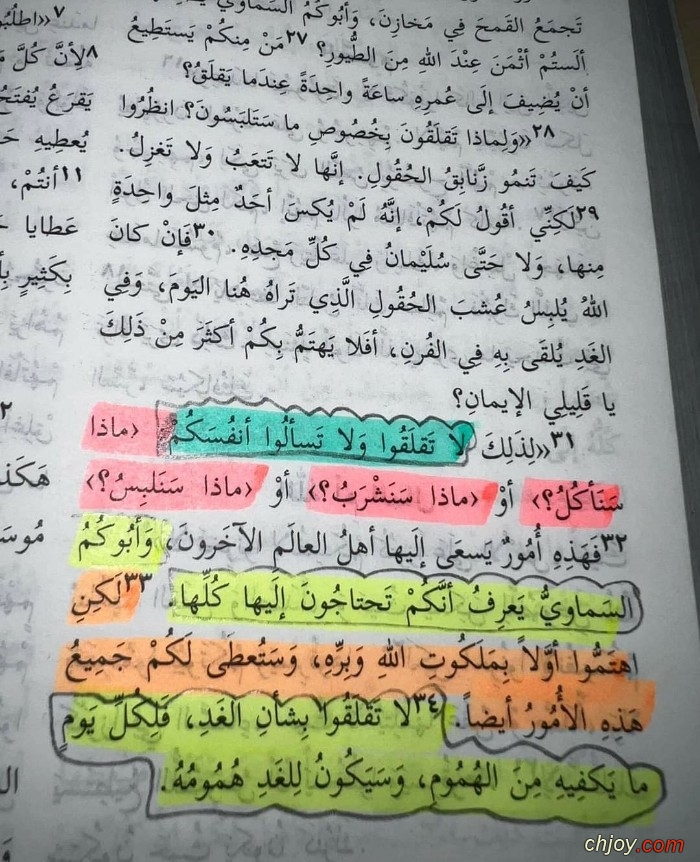 تَجمَعُ القَمحَ فِي مَخازِنَ، وَأبُوكُمُ السَّماوِيُّ
ألَستُمْ أثْمَنَ عِنْدَ اللهِ مِنَ الطُّيورِ؟ ٢٧مَنْ مِنكُمْ يَستَطِيعُ
أنْ يُضِيفَ إلَى عُمرِهِ ساعَةً واحِدَةً عِندَما يَقلَقُ؟
٢٨«وَلِماذا تَقلَقُونَ بِخُصُوصِ ما سَتَلبَسُونَ؟ انظُرُوا
كَيفَ تَنمُو زَنابِقُ الحُقُولِ. إنَّها لا تَتعَبُ وَلا تَغزِلُ.
٢٩لَكِنِّي أقُولُ لَكُمْ، إنَّهُ لَمْ يُكسَ أحَدٌ مِثلَ واحِدَةٍ
مِنها، وَلا حَتَّى سُلَيْمانُ فِي كُلِّ مَجدِهِ. ٣٠فَإنْ كانَ
اللهُ يُلبِسُ عُشبَ الحُقُولِ الَّذِي تَراهُ هُنا اليَومَ، وَفِي
الغَدِ يُلقَى بِهِ فِي الفُرنِ، أفَلا يَهتَمُّ بِكُمْ أكثَرَ مِنْ ذَلِكَ
يا قَلِيلِي الإيمانِ؟
٣١«لِذَلِكَ لا تَقلَقُوا وَلا تَسألُوا أنفُسَكُمْ ‹ماذا
سَنَأكُلُ؟› أوْ ‹ماذا سَنَشْرَبُ؟› أوْ ‹ماذا سَنَلبِسُ؟›
٣٢فَهَذِهِ أُمُورٌ يَسعَى إلَيها أهلُ العالَمِ الآخَرُونَ، وَأبُوكُمُ
السَّماوِيُّ يَعرِفُ أنَّكُمْ تَحتاجُونَ إلَيها كُلِّها. ٣٣لَكِنِ
اهتَمُّوا أوَّلاً بِمَلَكُوتِ اللهِ وَبِرِّهِ، وَسَتُعطَى لَكُمْ جَمِيعُ
هَذِهِ الأُمُورُ أيضاً. ٣٤لا تَقلَقُوا بِشأنِ الغَدِ، فَلِكُلِّ يَومٍ
ما يَكفِيهِ مِنَ الهُمُومِ، وَسَيَكُونُ لِلغَدِ هُمُومُهُ.
٧«اطلُبُوا
٨لِأنَّ كُلَّ
يَقرَعُ يُفتَحُ
يُعطِيهِ
١١أنتُمْ،
عَطايا
بِكَثِيرٍ
٢
هَكَذا
chjoy.com